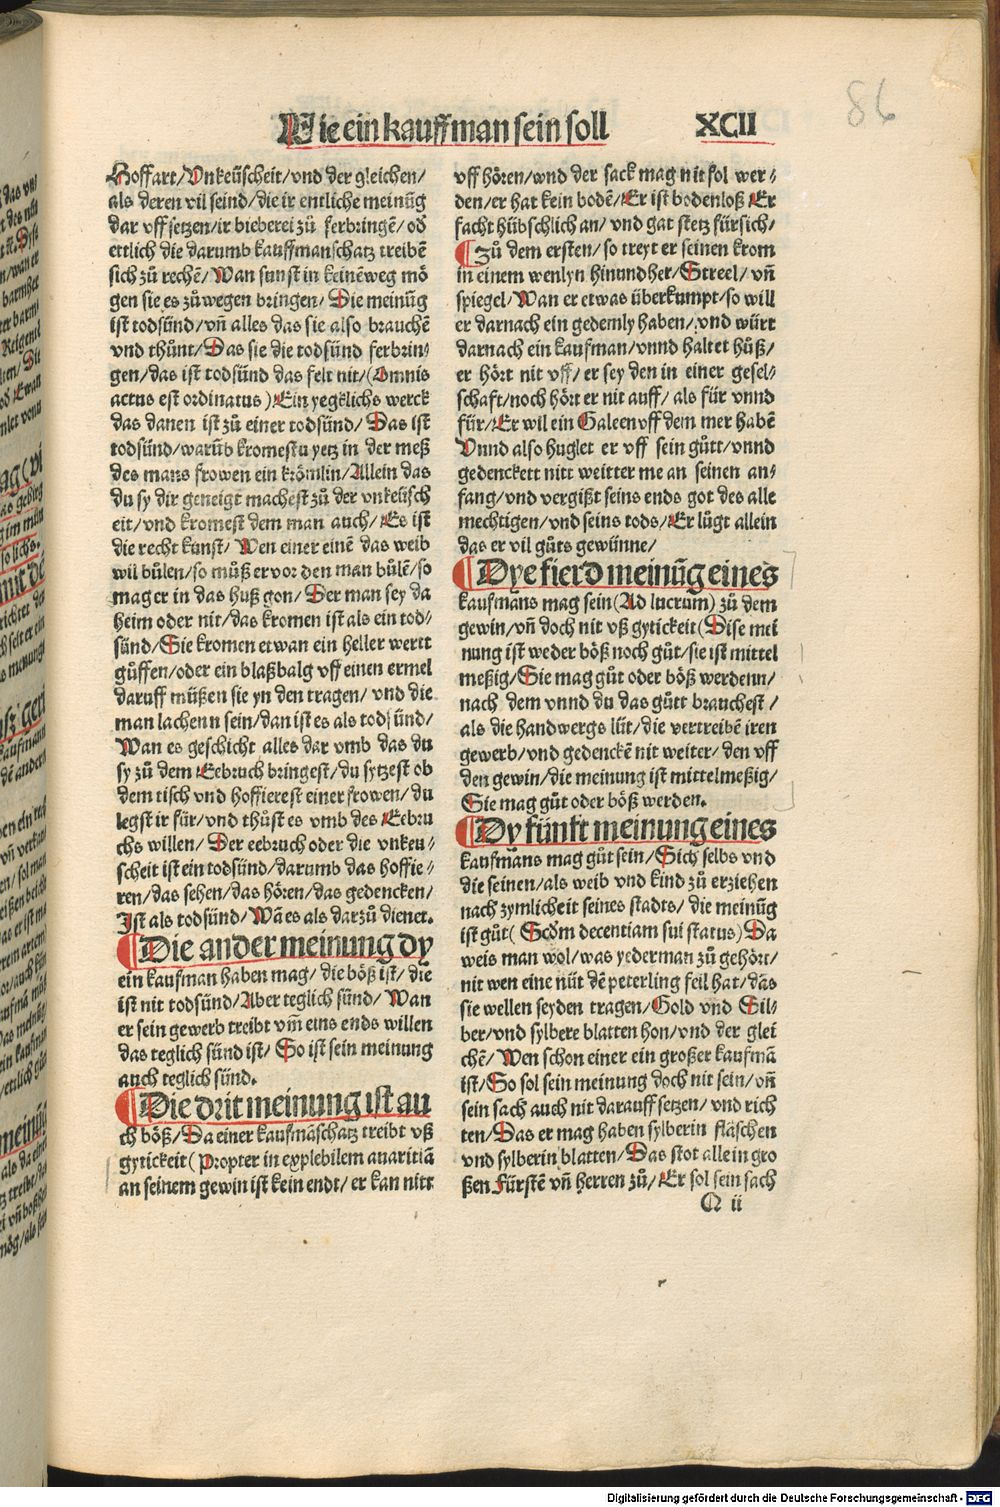 86
Wie ein kauffman sein soll XCII
Hoffart/Vnkeüscheit/vnd der gleichen/
als deren vil seind/die ir entliche meinūg
dar vff setzen/ir bieberei zů ferbringē/od
ettlich die darumb kauffmanschatz treibē
sich zů rechē/Wan sunst in keinēweg mö
gen sie es zůwegen bringen/Die meinūg
ist todsünd/vñ alles das sie also brauchē
vnd thůnt/Das sie die todsünd ferbrin⸗
gen/das ist todsünd das felt nit/(Omnis
actus est ordinatus) Ein yegklichs werck
das danen ist zů einer todsünd/Das ist
todsünd/warūb kromestu yetz in der meß
des mans frowen ein krömlin/Allein das
du sy dir geneigt machest zů der vnkeüsch
eit/vnd kromest dem man auch/Es ist
die recht kunst/Wen einer einē das weib
wil bůlen/so můß er vor den man bůlē/so
mag er in das huß gon/Der man sey da
heim oder nit/das kromen ist als ein tod⸗
sünd/Sie kromen etwan ein heller wertt
güffen/oder ein blaßbalg vff einen ermel
daruff müßen sie yn den tragen/vnd die
man lachenn sein/dan ist es als todsünd/
Wan es geschicht alles dar vmb das du
sy zů dem Eebruch bringest/du sytzest ob
dem tisch vnd hoffierest einer frowen/du
legst ir für/vnd thůst es vmb des Eebru
chs willen/Der eebruch oder die vnkeu⸗
scheit ist ein todsünd/darumb das hoffie⸗
ren/das sehen/das hören/das gedencken/
Ist als todsünd/Wā es als darzů dienet.
¶Die ander meinung dy
ein kaufman haben mag/die böß ist/die
ist nit todsünd/Aber teglich sünd/Wan
er sein gewerb treibt vm̄ eins ends willen
das teglich sünd ist/So ist sein meinung
auch teglich sünd.
¶Die drit meinung ist au
ch böß/Da einer kaufmāschatz treibt vß
gytickeit (Propter in explebilem auaritiā
an seinem gewin ist kein endt/er kan nitt
vff hören/wnd der sack mag nit fol wer⸗
den/er hat kein bodē/Er ist bodenloß Er
facht hübschlich an/vnd gat stetz fürsich/
¶Zů dem ersten/so treyt er seinen krom
in einem wenlyn hinundher/Streel/vñ
spiegel/Wan er etwas überkumpt/so will
er darnach ein gedemly haben/vnd würt
darnach ein kaufman/vnnd haltet hůß/
er hört nit vff/er sey den in einer gesel⸗
schaft/noch hört er nit auff/als für vnnd
für/Er wil ein Galeen vff dem mer habē
Vnnd also huglet er vff sein gůtt/vnnd
gedenckett nitt weitter me an seinen an⸗
fang/vnd vergißt seins ends got des alle
mechtigen/vnd seins tods/Er lůgt allein
das er vil gůts gewünne/
¶Dye fierd meinūg eines
kaufmans mag sein (Ad lucrum) zů dem
gewin/vñ doch nit vß gytickeit (Dise mei
nung ist weder böß noch gůt/sie ist mittel
meßig/Sie mag gůt oder böß werdenn/
nach dem vnnd du das gůtt brauchest/
als die handwergs lüt/die vertreibē iren
gewerb/vnd gedenckē nit weiter/den vff
den gewin/die meinung ist mittelmeßig/
Sie mag gůt oder böß werden.
¶Dy fünft meinung eines
kaufmans mag gůt sein/Sich selbs vnd
die seinen/als weib vnd kind zů erziehen
nach zymlicheit seines stadts/die meinūg
ist gůt (Scdm decentiam sui status) Da
weis man wol/was yederman zů gehört/
nit wen eine nüt dē peterling feil hat/das
sie wellen seyden tragen/Gold vnd Sil⸗
ber/vnd sylbere blatten hon/vnd der glei
chē/Wen schon einer ein großer kaufmā
ist/So sol sein meinung doch nit sein/vñ
sein sach auch nit darauff setzen/vnd rich
ten/Das er mag haben sylberin fläschen
vnd sylberin blatten/Das stot allein gro
ßen Fürstē vñ herren zů/Er sol sein sach
Q ii
Digitalisierung gefördert durch die Deutsche Forschungsgemeinschaft - DFG